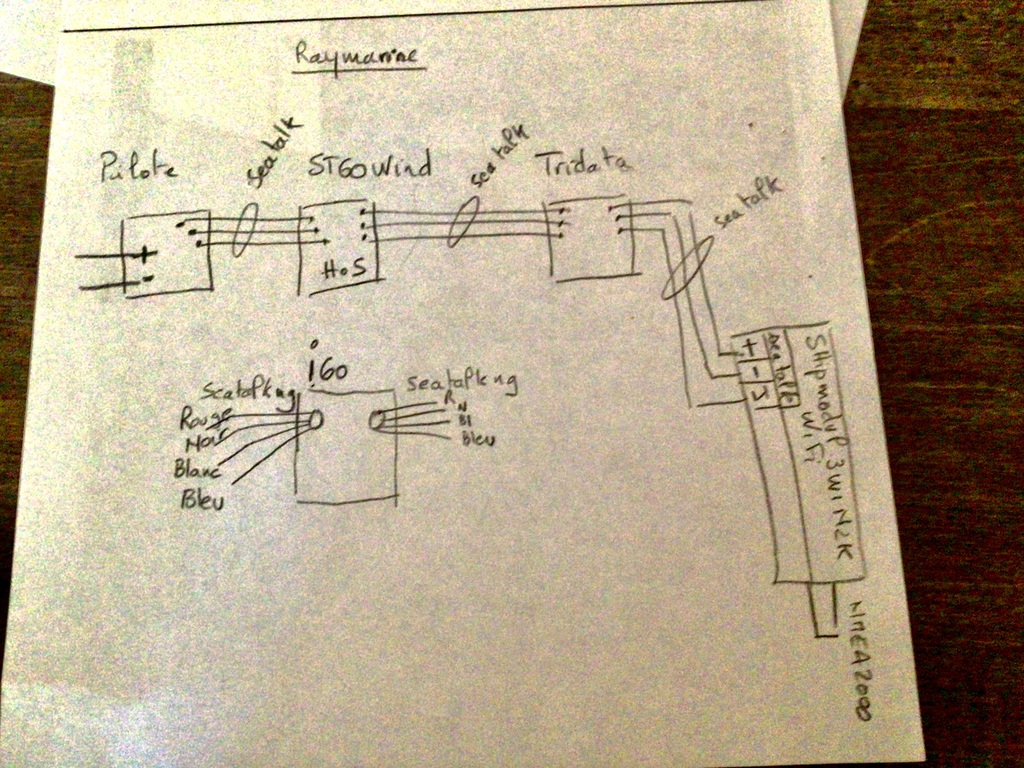 Raymarine
Pilote
seatalk
ST60 Wind
seatalk
Tridata
seatalk
+
-
H.S
+
-
S
seatalk
Shipmodul 3WiN2K
WiFi
NMEA2000
i60
Seatalkng
Rouge
Noir
Blanc
Bleu
seatalkng
R
N
Bl
Bleu